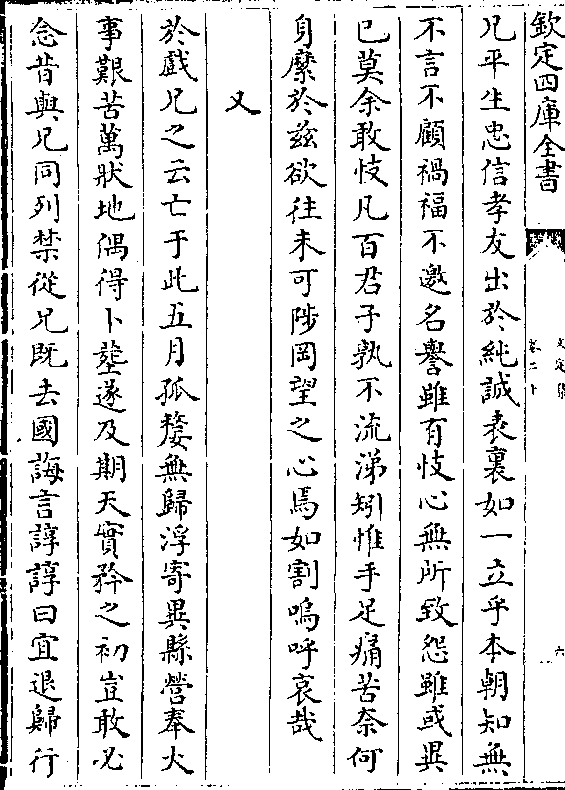 欽定四庫全書
兄平生忠信孝友出於純誠表裏如一立乎本朝知無
不言不顧禍福不邀名譽雖有忮心無所致怨雖或異
已莫余敢忮凡百君子孰不流涕矧惟手足痛苦奈何
身縻於兹欲往未可陟岡望之心焉如割嗚呼哀哉
又
於戲兄之云亡于此五月孤嫠無歸浮寄異縣營奉大
事艱苦萬狀地偶得卜塟遂及期天實矜之初豈敢必
念昔與兄同列禁從兄既去國誨言諄諄曰宜退歸行
卷二十
六